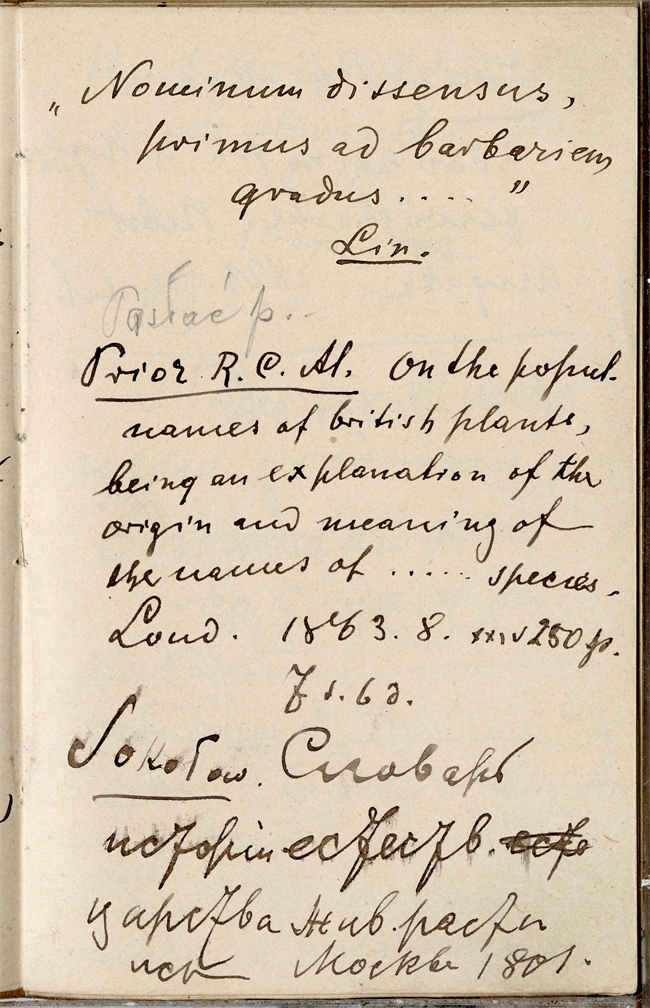 „ Nominum dissensus,
primus ad barbariem
gradus .... ”
Lin.
Prior R. C. Al. On the popul.
names of british plants,
being an explanation of the
origin and meaning of
the names of ..... species.
Lond. 1863. 8. xxiv 250 p.
7 s. 6 d.
Словарь
исторіи естеств.
царства Жив. расти
Москва 1801.